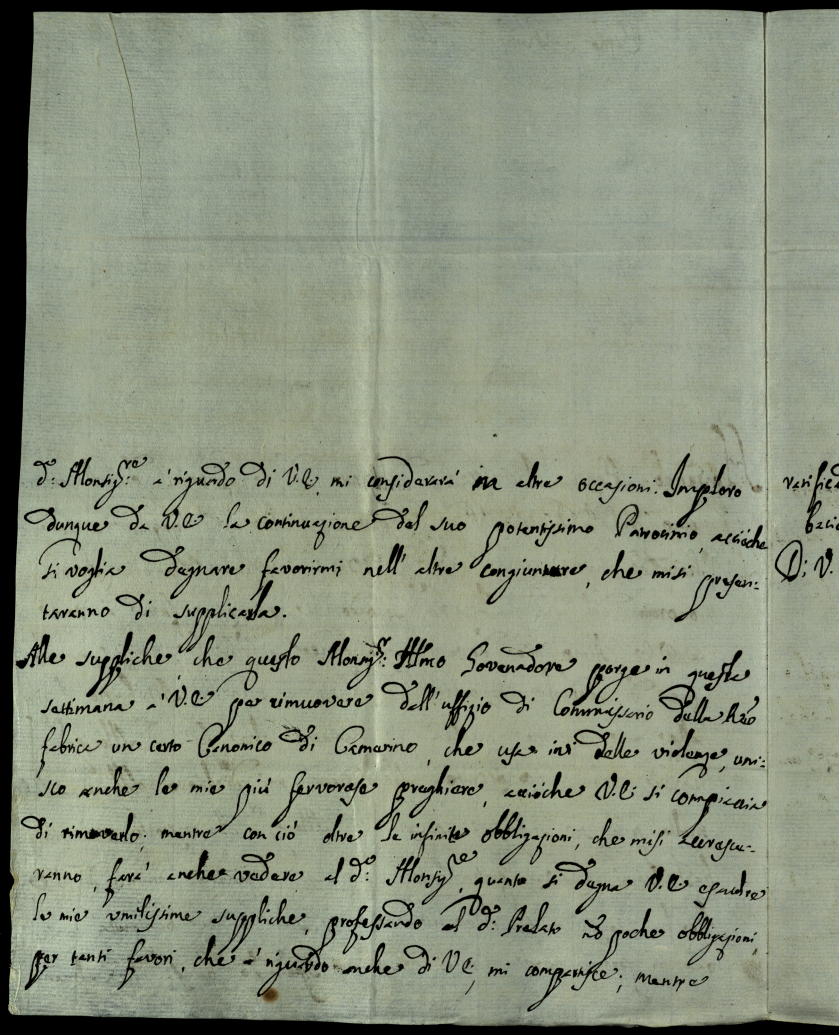 d.º Monsig.re à riguardo di V.E. mi considererà in altre occasioni. Imploro
dunque da V.E. la continuazione del suo potentissimo Patrocinio, acciòche
si voglia degnare favorirmi nell'altre congiunture, che misi presen-
taranno di supplicarla.
Alle suppliche che questo Monsig.r Illmo Governadore porge in questa
settimana à V.E. per rimuovere dall'uffizio di Commissario della
fabrica un certo Canonico di Camerino, che usa ivi delle violenze, uni-
sco anche le mie più fervorose preghiere, acciòche V.E. si compiaccia
di rimoverlo; mentre con ciò oltre le infinite obbligazioni, che misi accresce-
ranno, farà anche vedere al d.º Monsig.re, quanto si degna V.E. esaudire
le mie umilissime suppliche, professando al d.º Prelato nõ poche obbligazioni,
per tanti favori, che à riguardo anche di V.E. mi compartisce; mentre
Di V.